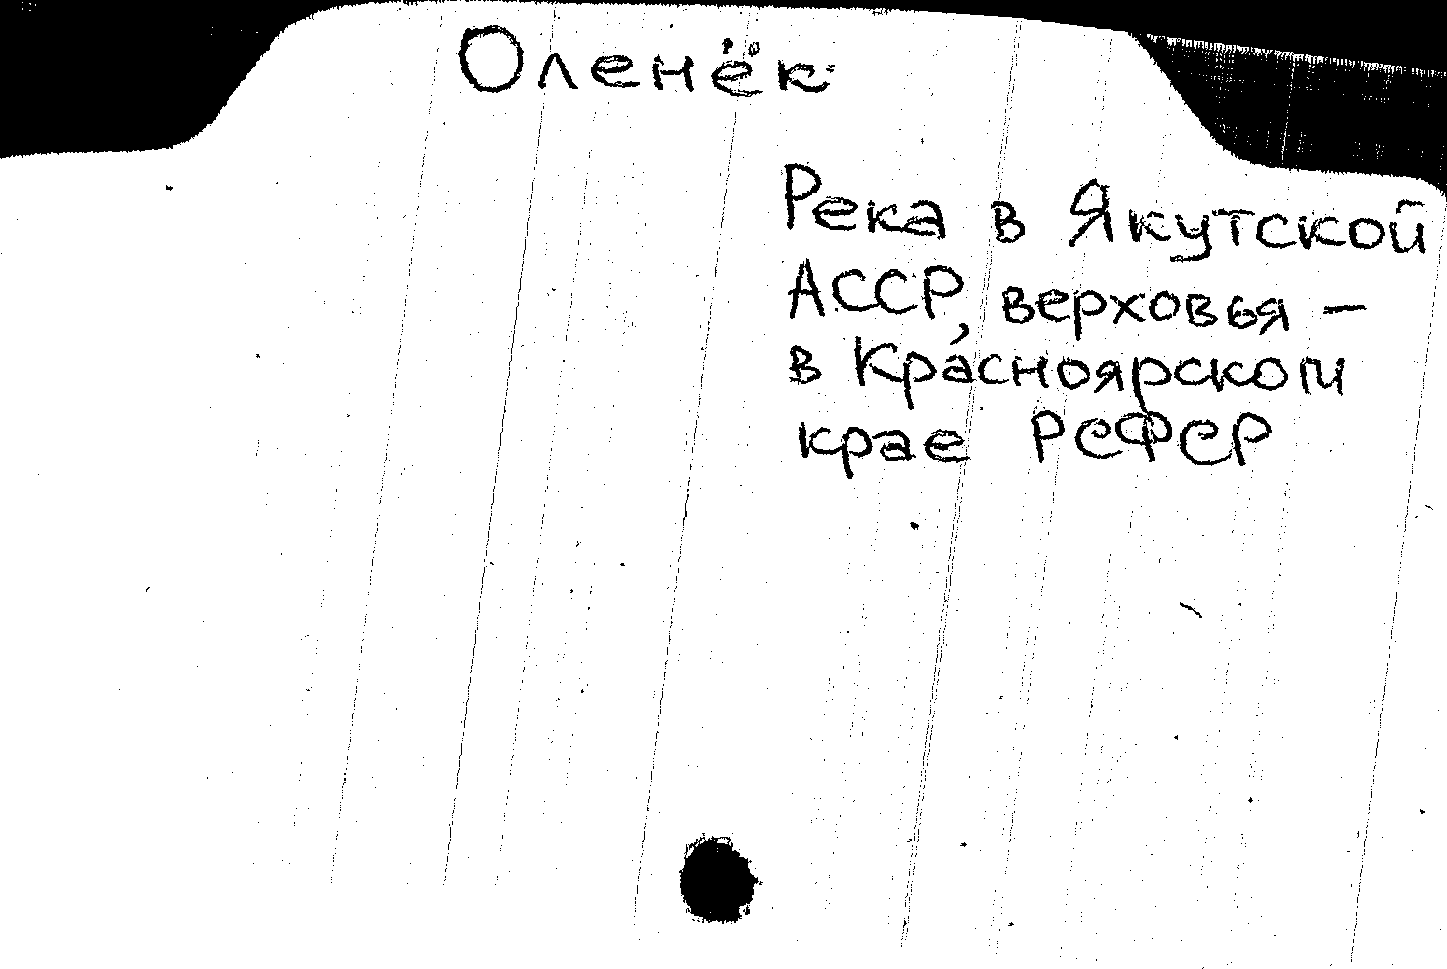 Оленёк
Река в Якутской
АССР, верховья —
в Красноярском
крае РСФСР